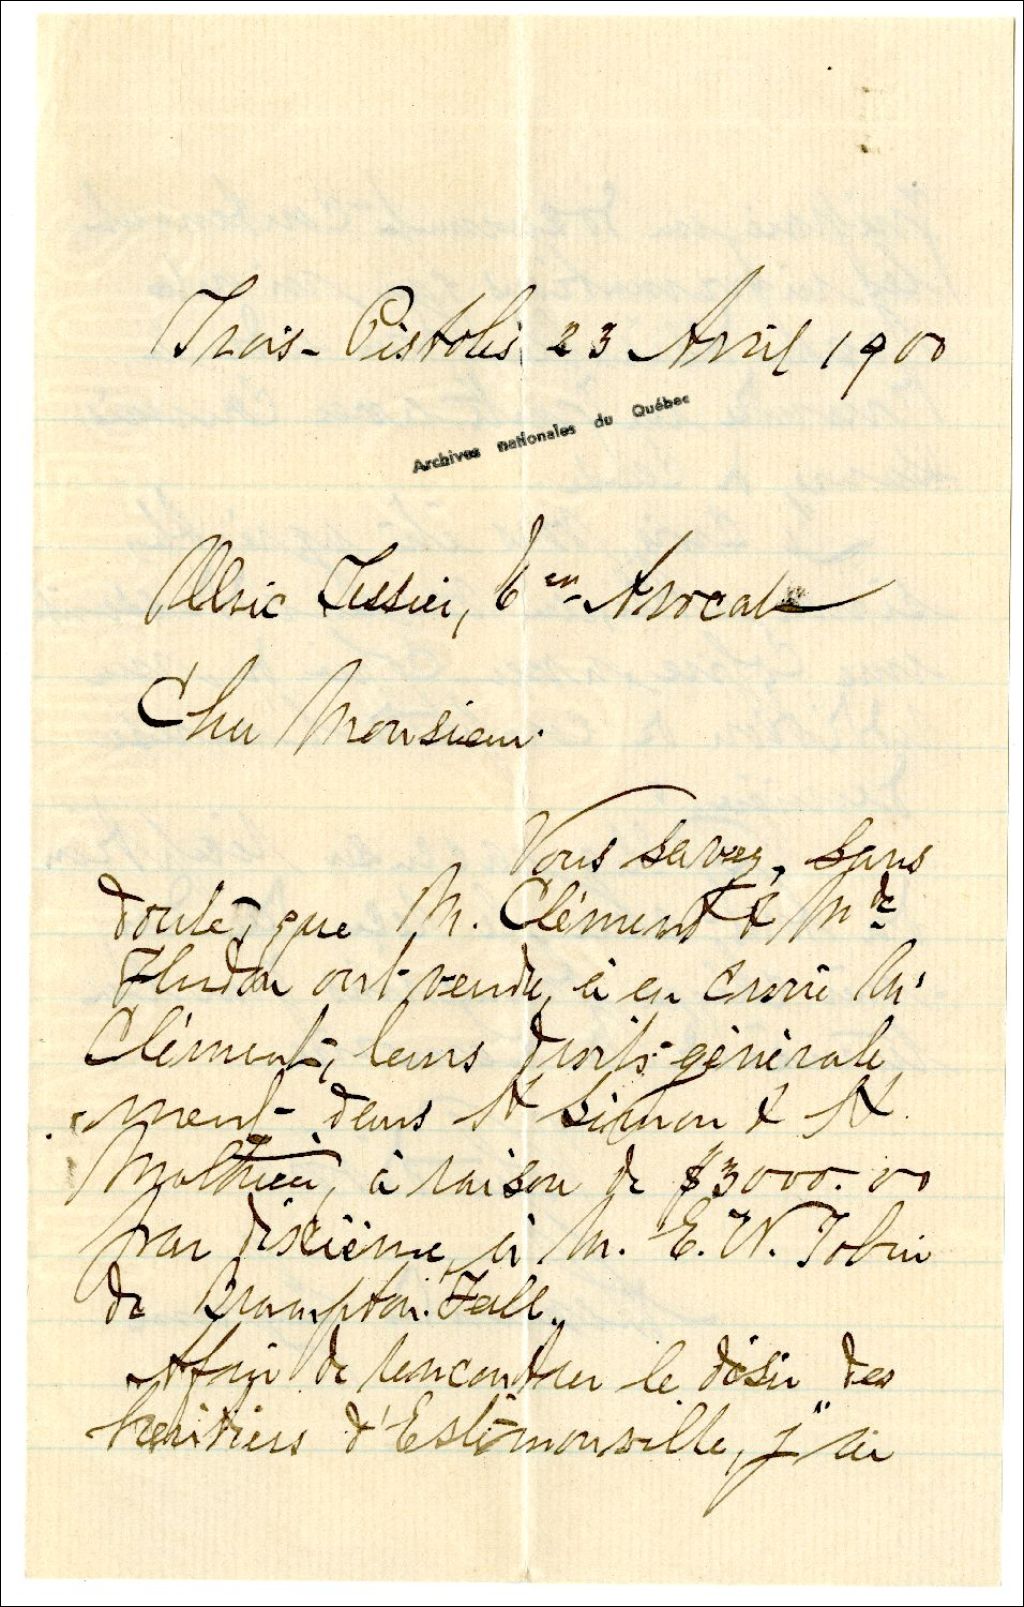 Trois-Pistoles 23 Avril 1900
Archives nationales du Québec
Ulric Tessier, Ecr Avocat
Cher Monsieur
Vous savez, sans
doute, que M. Clément & Mde
Hudon ont vendu, à en croire M.
Clément, leurs droits générale
ment dans St Simon & St
Mathieu, à raison de $3000.00
par dixième, à M. E. W. Tobin
de Brompton Fall.
Afin de rencontrer le désir des
héritiers d'Estimonville, j'ai